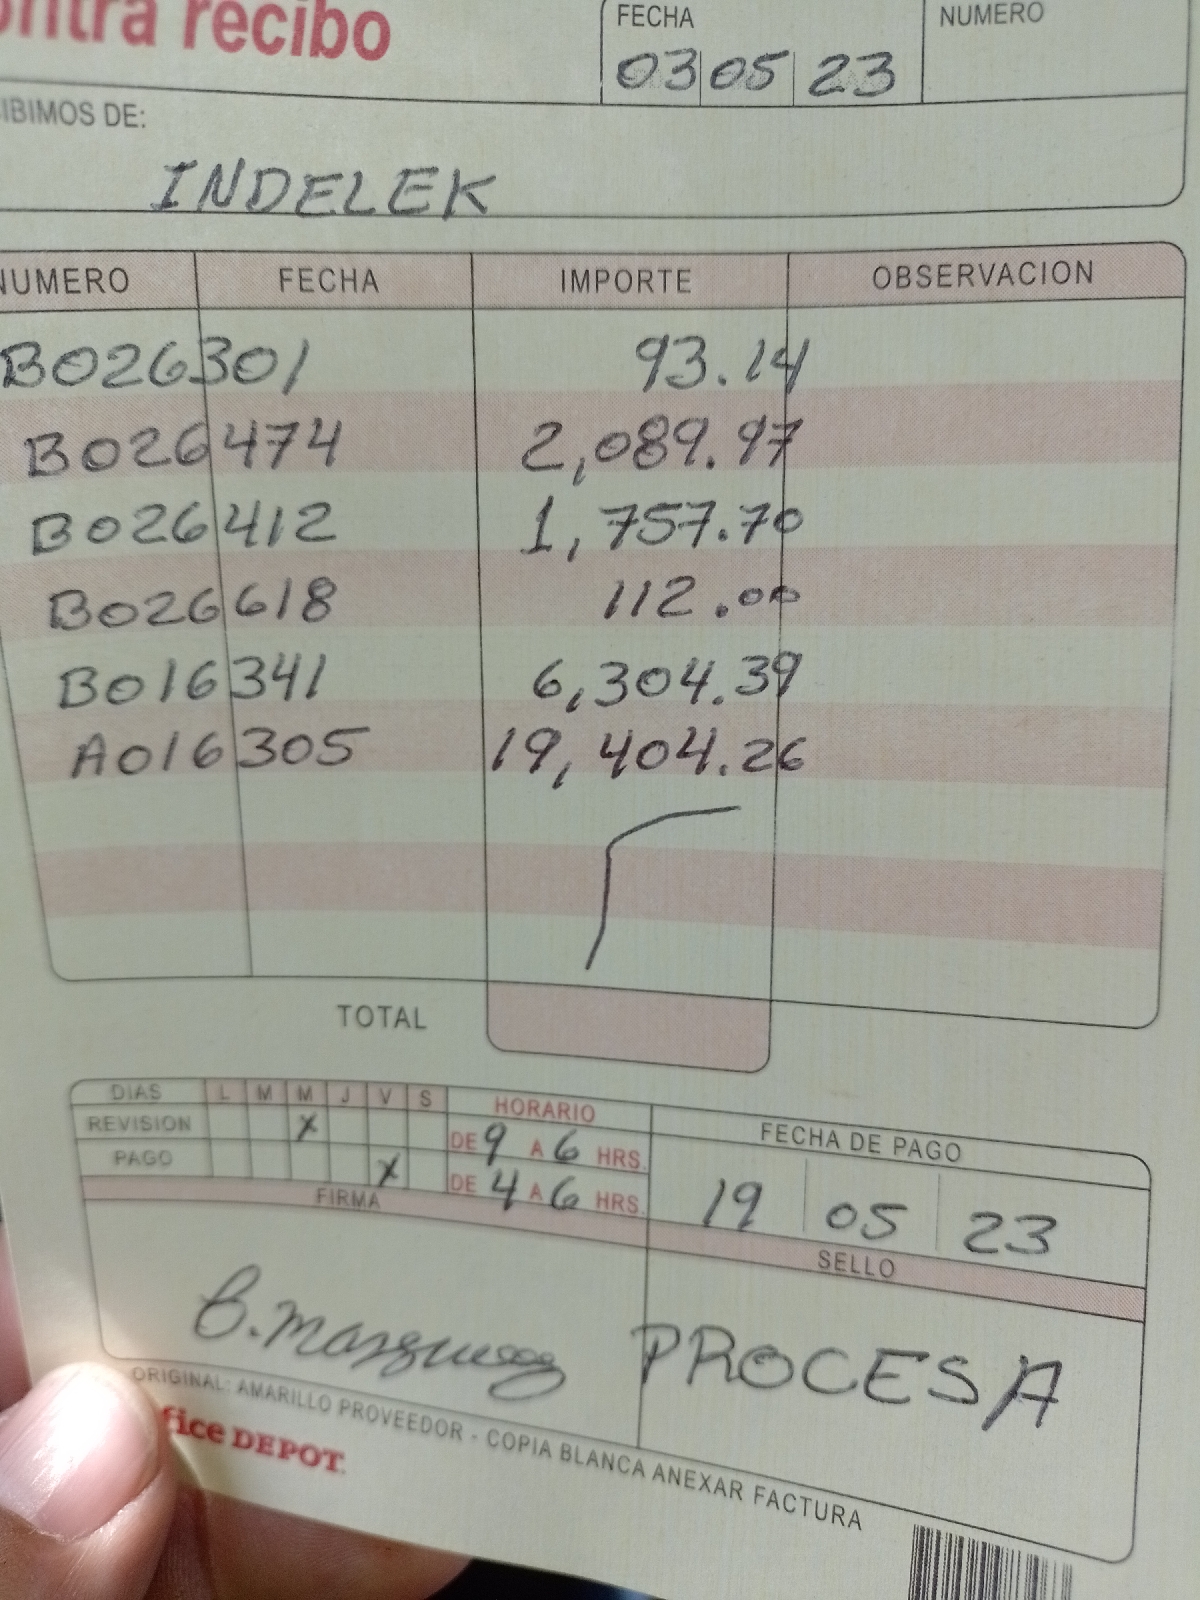 ontra recibo
FECHA NUMERO
03 05 23
IBIMOS DE:
INDELEK
NUMERO FECHA IMPORTE OBSERVACION
B026301 93.14
B026474 2,089.97
B026412 1,757.70
B026618 112.00
B016341 6,304.39
A016305 19,404.26
TOTAL
DIAS L M M J V S HORARIO
REVISION X DE 9 A 6 HRS.
PAGO X DE 4 A 6 HRS.
FECHA DE PAGO
19 05 23
FIRMA SELLO
B. Marquez PROCESA
ORIGINAL: AMARILLO PROVEEDOR - COPIA BLANCA ANEXAR FACTURA
fice DEPOT.